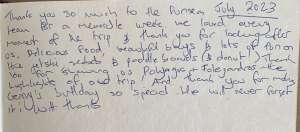 Thank you so much to the Pursea July 2023
team for a memorable week we loved every
moment of the trip & thank you for looking after
us. Delicious food, beautiful bays & lots of fun on
the jetski seabobs & paddle boards (& donut) Thank
you for showing us Pollença + Folegandros - the
highlights of our trip. And thank you for making
Gerry's birthday so special. He will never forget
it. With thanks